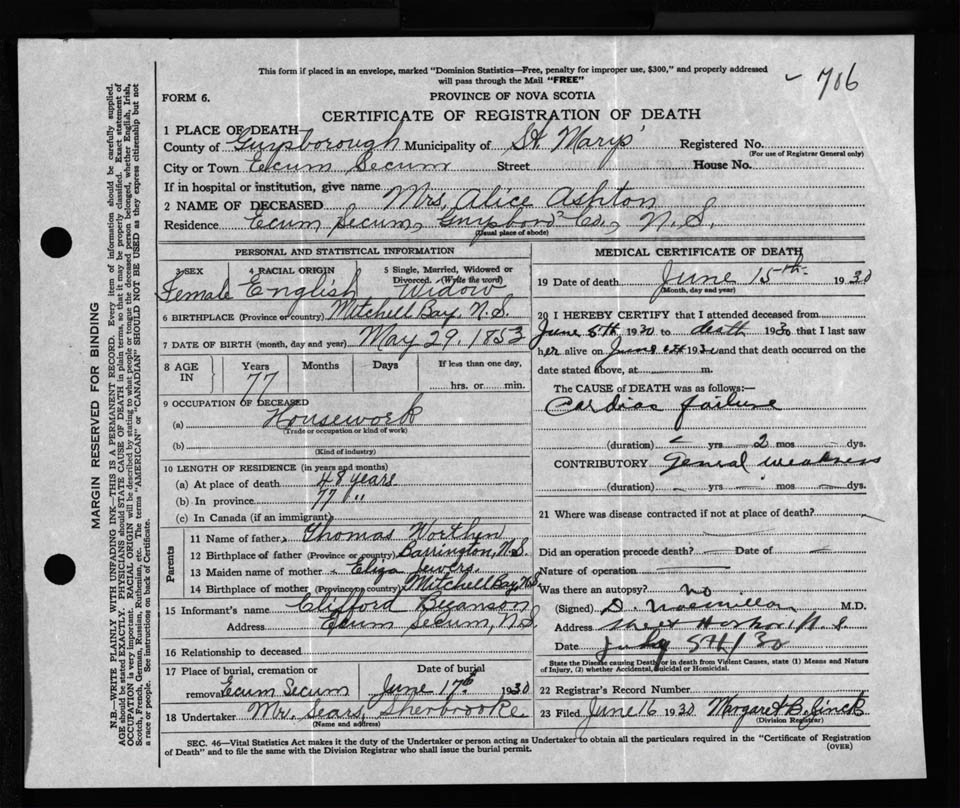 This form if placed in an envelope, marked "Dominion Statistics—Free, penalty for improper use, $300," and properly addressed
will pass through the Mail "FREE"
706
FORM 6.
PROVINCE OF NOVA SCOTIA
CERTIFICATE OF REGISTRATION OF DEATH
1 PLACE OF DEATH
County of Guysborough Municipality of St. Marys' Registered No.
(For use of Registrar General only)
City or Town Ecum Secum Street House No.
If in hospital or institution, give name
2 NAME OF DECEASED Mrs. Alice Ashton
Residence Ecum Secum, Guysboro Co., N.S.
(Usual place of abode)
PERSONAL AND STATISTICAL INFORMATION
3 SEX 4 RACIAL ORIGIN 5 Single, Married, Widowed or
Divorced. (Write the word)
Female English Widow
6 BIRTHPLACE (Province or country) Mitchell Bay, N.S.
7 DATE OF BIRTH (month, day and year) May 29, 1853
8 AGE IN Years Months Days If less than one day,
77 hrs. or min.
9 OCCUPATION OF DECEASED
(a) Housework
(Trade or occupation or kind of work)
(b)
(Kind of industry)
10 LENGTH OF RESIDENCE (in years and months)
(a) At place of death 48 years
(b) In province 77 "
(c) In Canada (if an immigrant)
Parents
11 Name of father Thomas Worthin
12 Birthplace of father (Province or country) Barrington, N.S.
13 Maiden name of mother Eliza Jewers.
14 Birthplace of mother (Province or country) Mitchell Bay, N.S.
15 Informant's name Clifford Bezanson
Address Ecum Secum, N.S.
16 Relationship to deceased
17 Place of burial, cremation or Date of burial
removal Ecum Secum June 17th 1930
18 Undertaker Mr. Sears, Sherbrooke
(Name and address)
MEDICAL CERTIFICATE OF DEATH
19 Date of death June 15th 1930
(Month, day and year)
20 I HEREBY CERTIFY that I attended deceased from
June 5th 1930 to death 1930 that I last saw
her alive on June 1930 and that death occurred on the
date stated above, at m.
The CAUSE of DEATH was as follows:—
Cardiac failure
(duration) – yrs – 2 mos – dys.
CONTRIBUTORY weakness
(duration) yrs. mos. dys.
21 Where was disease contracted if not at place of death?
Did an operation precede death? Date of
Nature of operation
Was there an autopsy? no
(Signed) D. Macmillan M.D.
Address Sheet Harbor N.S
Date July 5th/30
State the Disease causing Death, or in death from Violent Causes, state (1) Means and Nature
of Injury, (2) whether Accidental, Suicidal or Homicidal.
22 Registrar's Record Number
23 Filed June 16 1930 Margaret B. Jinck
(Division Registrar)
SEC. 46—Vital Statistics Act makes it the duty of the Undertaker or person acting as Undertaker to obtain all the particulars required in the "Certificate of Registration
of Death" and to file the same with the Division Registrar who shall issue the burial permit.
(OVER)
MARGIN RESERVED FOR BINDING
N.B.—WRITE PLAINLY WITH UNFADING INK—THIS IS A PERMANENT RECORD. Every item of information should be carefully supplied.
AGE should be stated EXACTLY. PHYSICIANS should STATE CAUSE OF DEATH in plain terms, so that it may be properly classified. Exact statement of
OCCUPATION is very important. RACIAL ORIGIN will be described by stating to what people or tongue the deceased person belonged, whether English, Irish,
Scotch, French, German, Russian, Ruthenian, etc. The terms "AMERICAN" or "CANADIAN" SHOULD NOT BE USED as they express citizenship but not
a race or people. See instructions on back of Certificate.